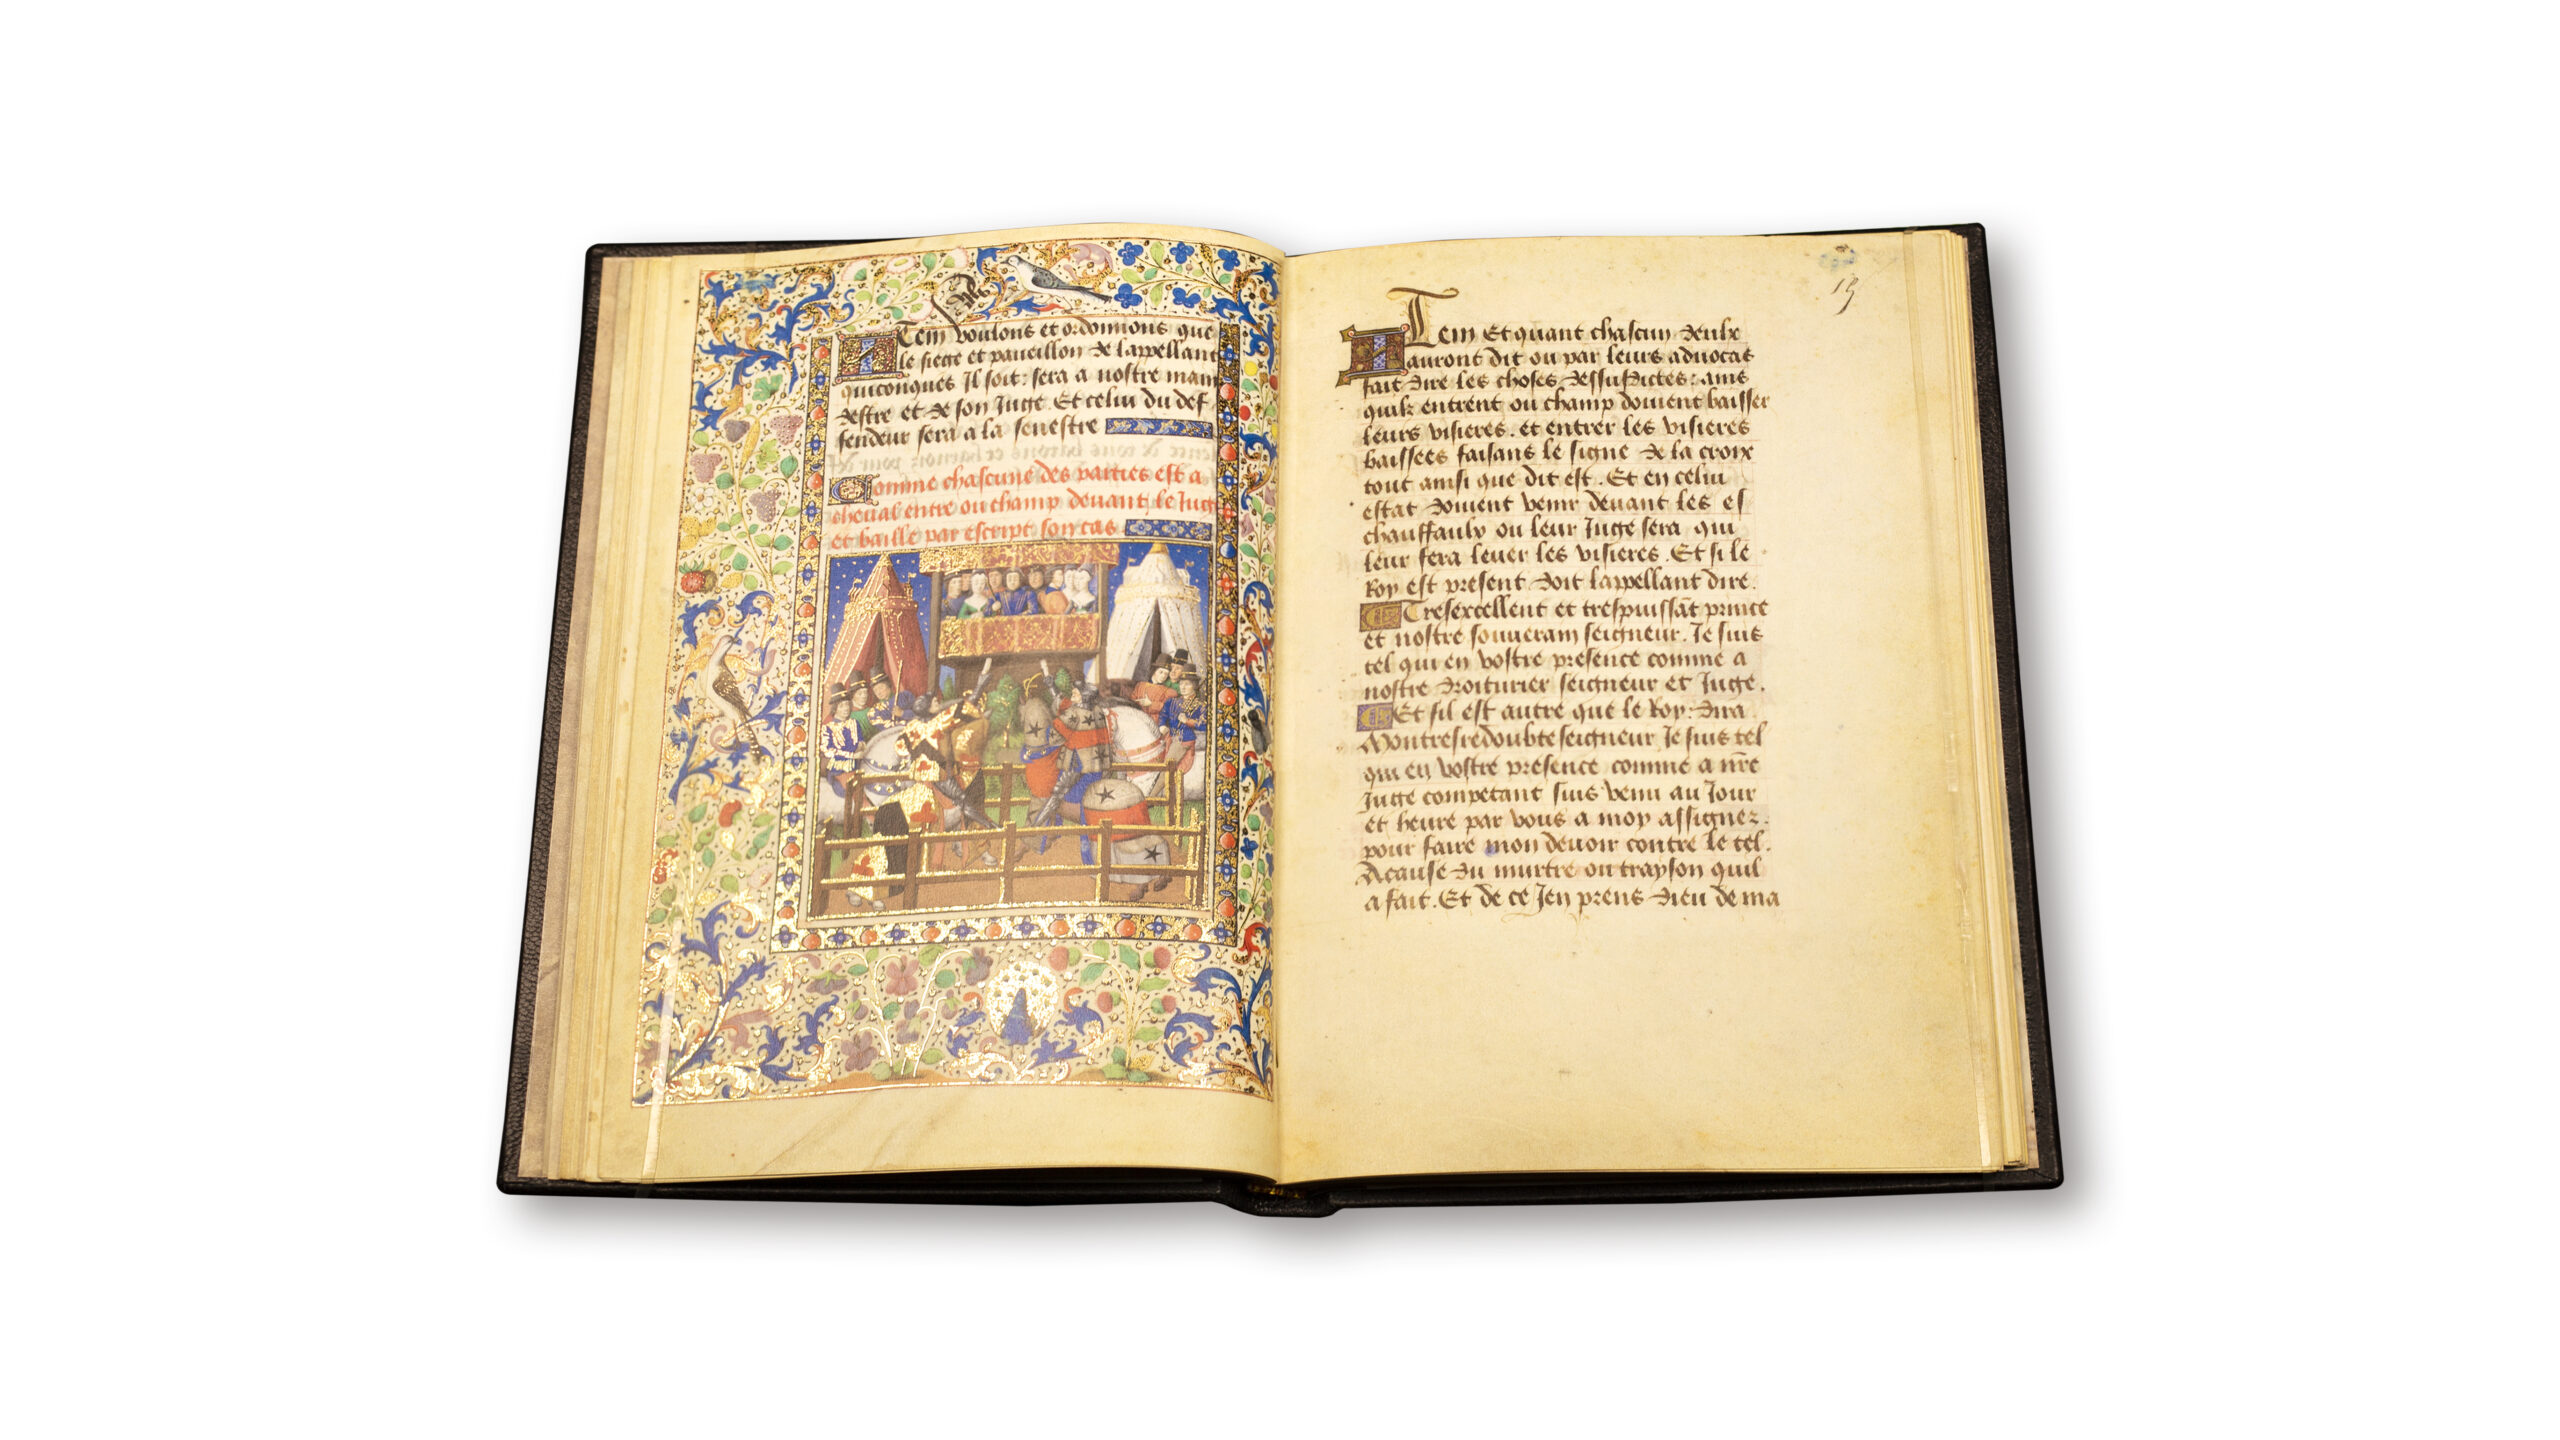 Item voulons et ordonnons que
le siege et paveillon de lappellant
quiconques Il soit: sera a nostre main
destre et de son Juge. Et celui du def
fendeur sera a la senestre
Comme chascune des parties est a
cheval entre ou champ devant le Juge
et baille par escript son cas
19
Item Et quant chascun deulx
auront dit ou par leurs advocas
fait dire les choses dessusdictes: ains
quilz entrent ou champ doivent baisser
leurs visieres. et entrer les visieres
baissees faisans le signe de la croix
tout ainsi que dit est. Et en celui
estat doivent venir devant les es
chauffaulx ou leur Juge sera qui
leur fera lever les visieres. Et si le
Roy est present doit lappellant dire.
Tresexcellent et trespuissāt prince
et nostre souverain seigneur. Je suis
tel qui en vostre presence comme a
nostre droiturier seigneur et Juge.
Et sil est autre que le Roy: dira
Mon tresredoubte seigneur Je suis tel
qui en vostre presence comme a nr̄e
Juge competant suis venu au Jour
et heure par vous a moy assignez.
pour faire mon devoir contre le tel.
A cause du murtre ou trayson quil
a fait. Et de ce Jen prens dieu de ma